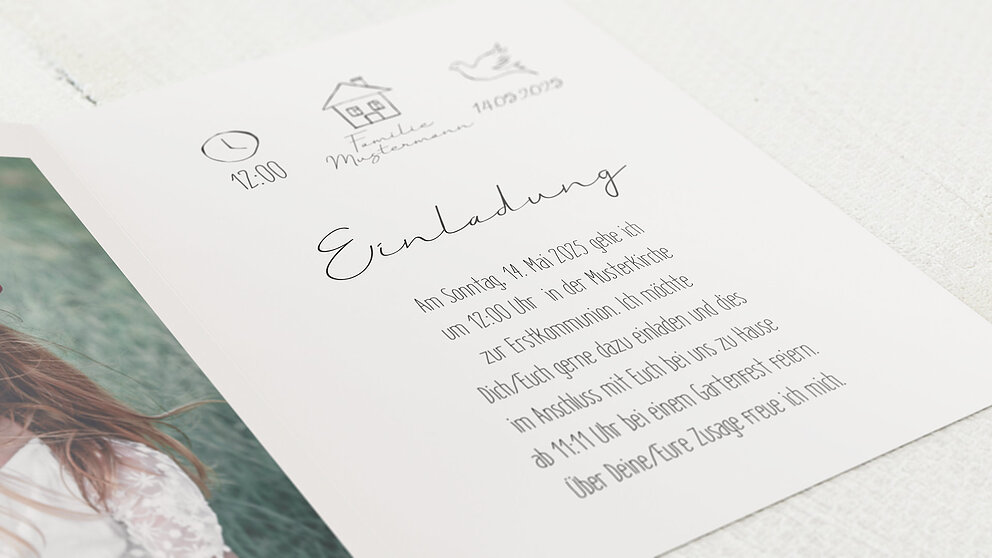 12:00
Familie
Mustermann
14.09.2029
Einladung
Am Sonntag, 14. Mai 2025 gehe ich
um 12:00 Uhr in der Musterkirche
zur Erstkommunion. Ich möchte
Dich/Euch gerne dazu einladen und dies
im Anschluss mit Euch bei uns zu Hause
ab 11:11 Uhr bei einem Gartenfest feiern.
Über Deine/Eure Zusage freue ich mich.